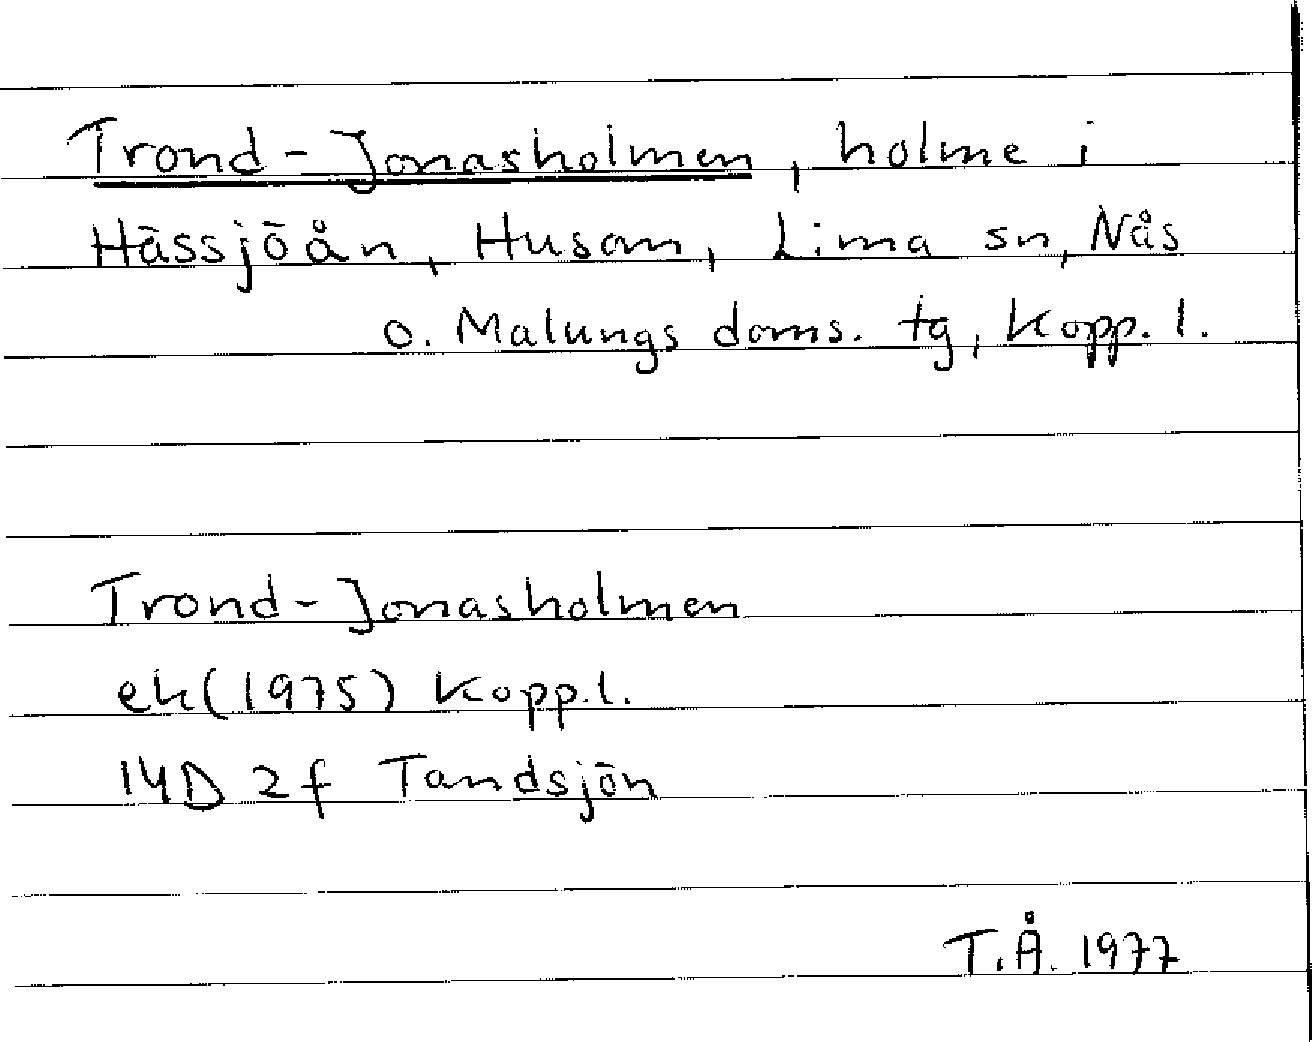 Trond-Jonasholmen, holme i
Hässjöån, Husom, Lima sn, Nås
o. Malungs doms. tg, Kopp. l.
Trond-Jonasholmen
ek(1975) Kopp.l.
14D 2f Tandsjön
T.Å. 1977